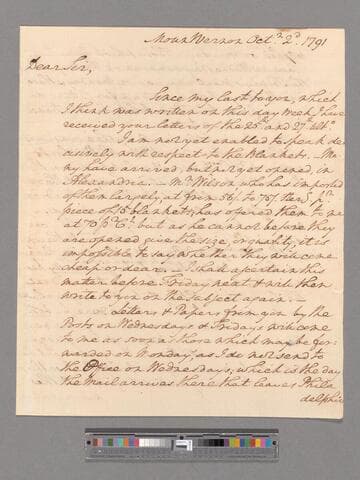 Mount Vernon Octr. 2d. 1791
Dear Sir,
Since my last to you, which
I think was written on this day week, I have
received your letters of the 25th. and 27th. ulto.
I am not yet enabled to speak de-
cisively with respect to the Blankets. — Ma
ny have arrived, but not yet opened, in
Alexandria. — Mr. Wilson who has imported
of them largely, at from 56/. to 75/. Sterg. pr.
piece of 15 blankets, has offered them to me
at 70 pr. Ct. but as he cannot before they
are opened give the size, or quality, it is
impossible to say whether they will come
cheap or dear. — I shall ascertain this
matter before Friday next & will then
write to you on the subject again. —
Letters & Papers from you by the
Posts on Wednesdays & Fridays will come
to me as soon as those which may be for-
warded on Monday, as I do not send to
the Office on Wednesdays, which is the day
the Mail arrives there that leaves Phila
delphia